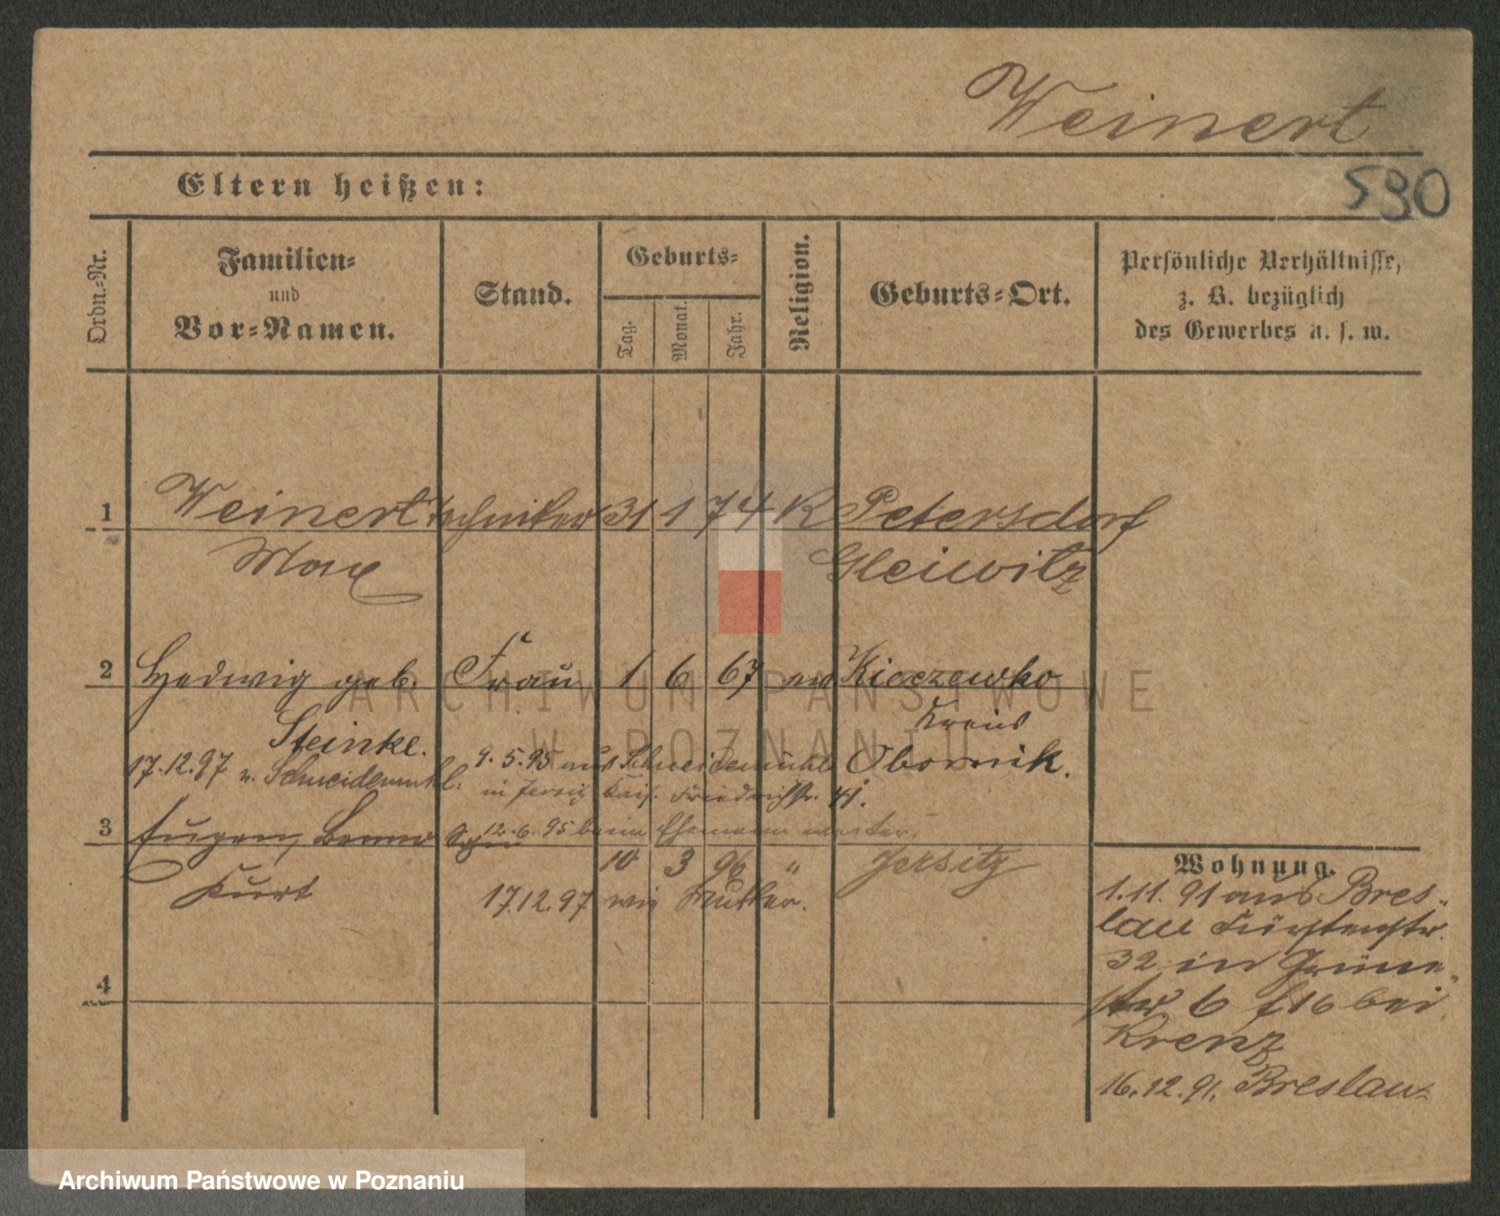 Weinert
Eltern heißen:
590
Ordn.-Nr.
Familien-
und
Vor-Namen.
Stand.
Geburts-
Tag.
Monat.
Jahr.
Religion.
Geburts-Ort.
Persönliche Verhältnisse,
z. B. bezüglich
des Gewerbes u. s. w.
1 Weinert Techniker 31 1 74 K Petersdorf
Max Gleiwitz
2 Hedwig geb. Frau 1 6 67 ev Kiczewko
Kreis
Steinke. Obornik.
17.12.97 n. Schneidemühl. 9.5.95 aus Schneidemühl
in Jersitz Kais. Friedrichstr. 41.
12.6.95 beim Ehemann
3 Eugen, Benno Sohn
10 3 96 " Jersitz
Kurt 17.12.97 wie Mutter.
4
Wohnung.
1.11.91 aus Bres-
lau Fürstenstr.
32 in Grüne-
str 6 f 16 bei
Krenz
16.12.91. Breslau
ARCHIWUM PAŃSTWOWE
W POZNANIU
Archiwum Państwowe w Poznaniu